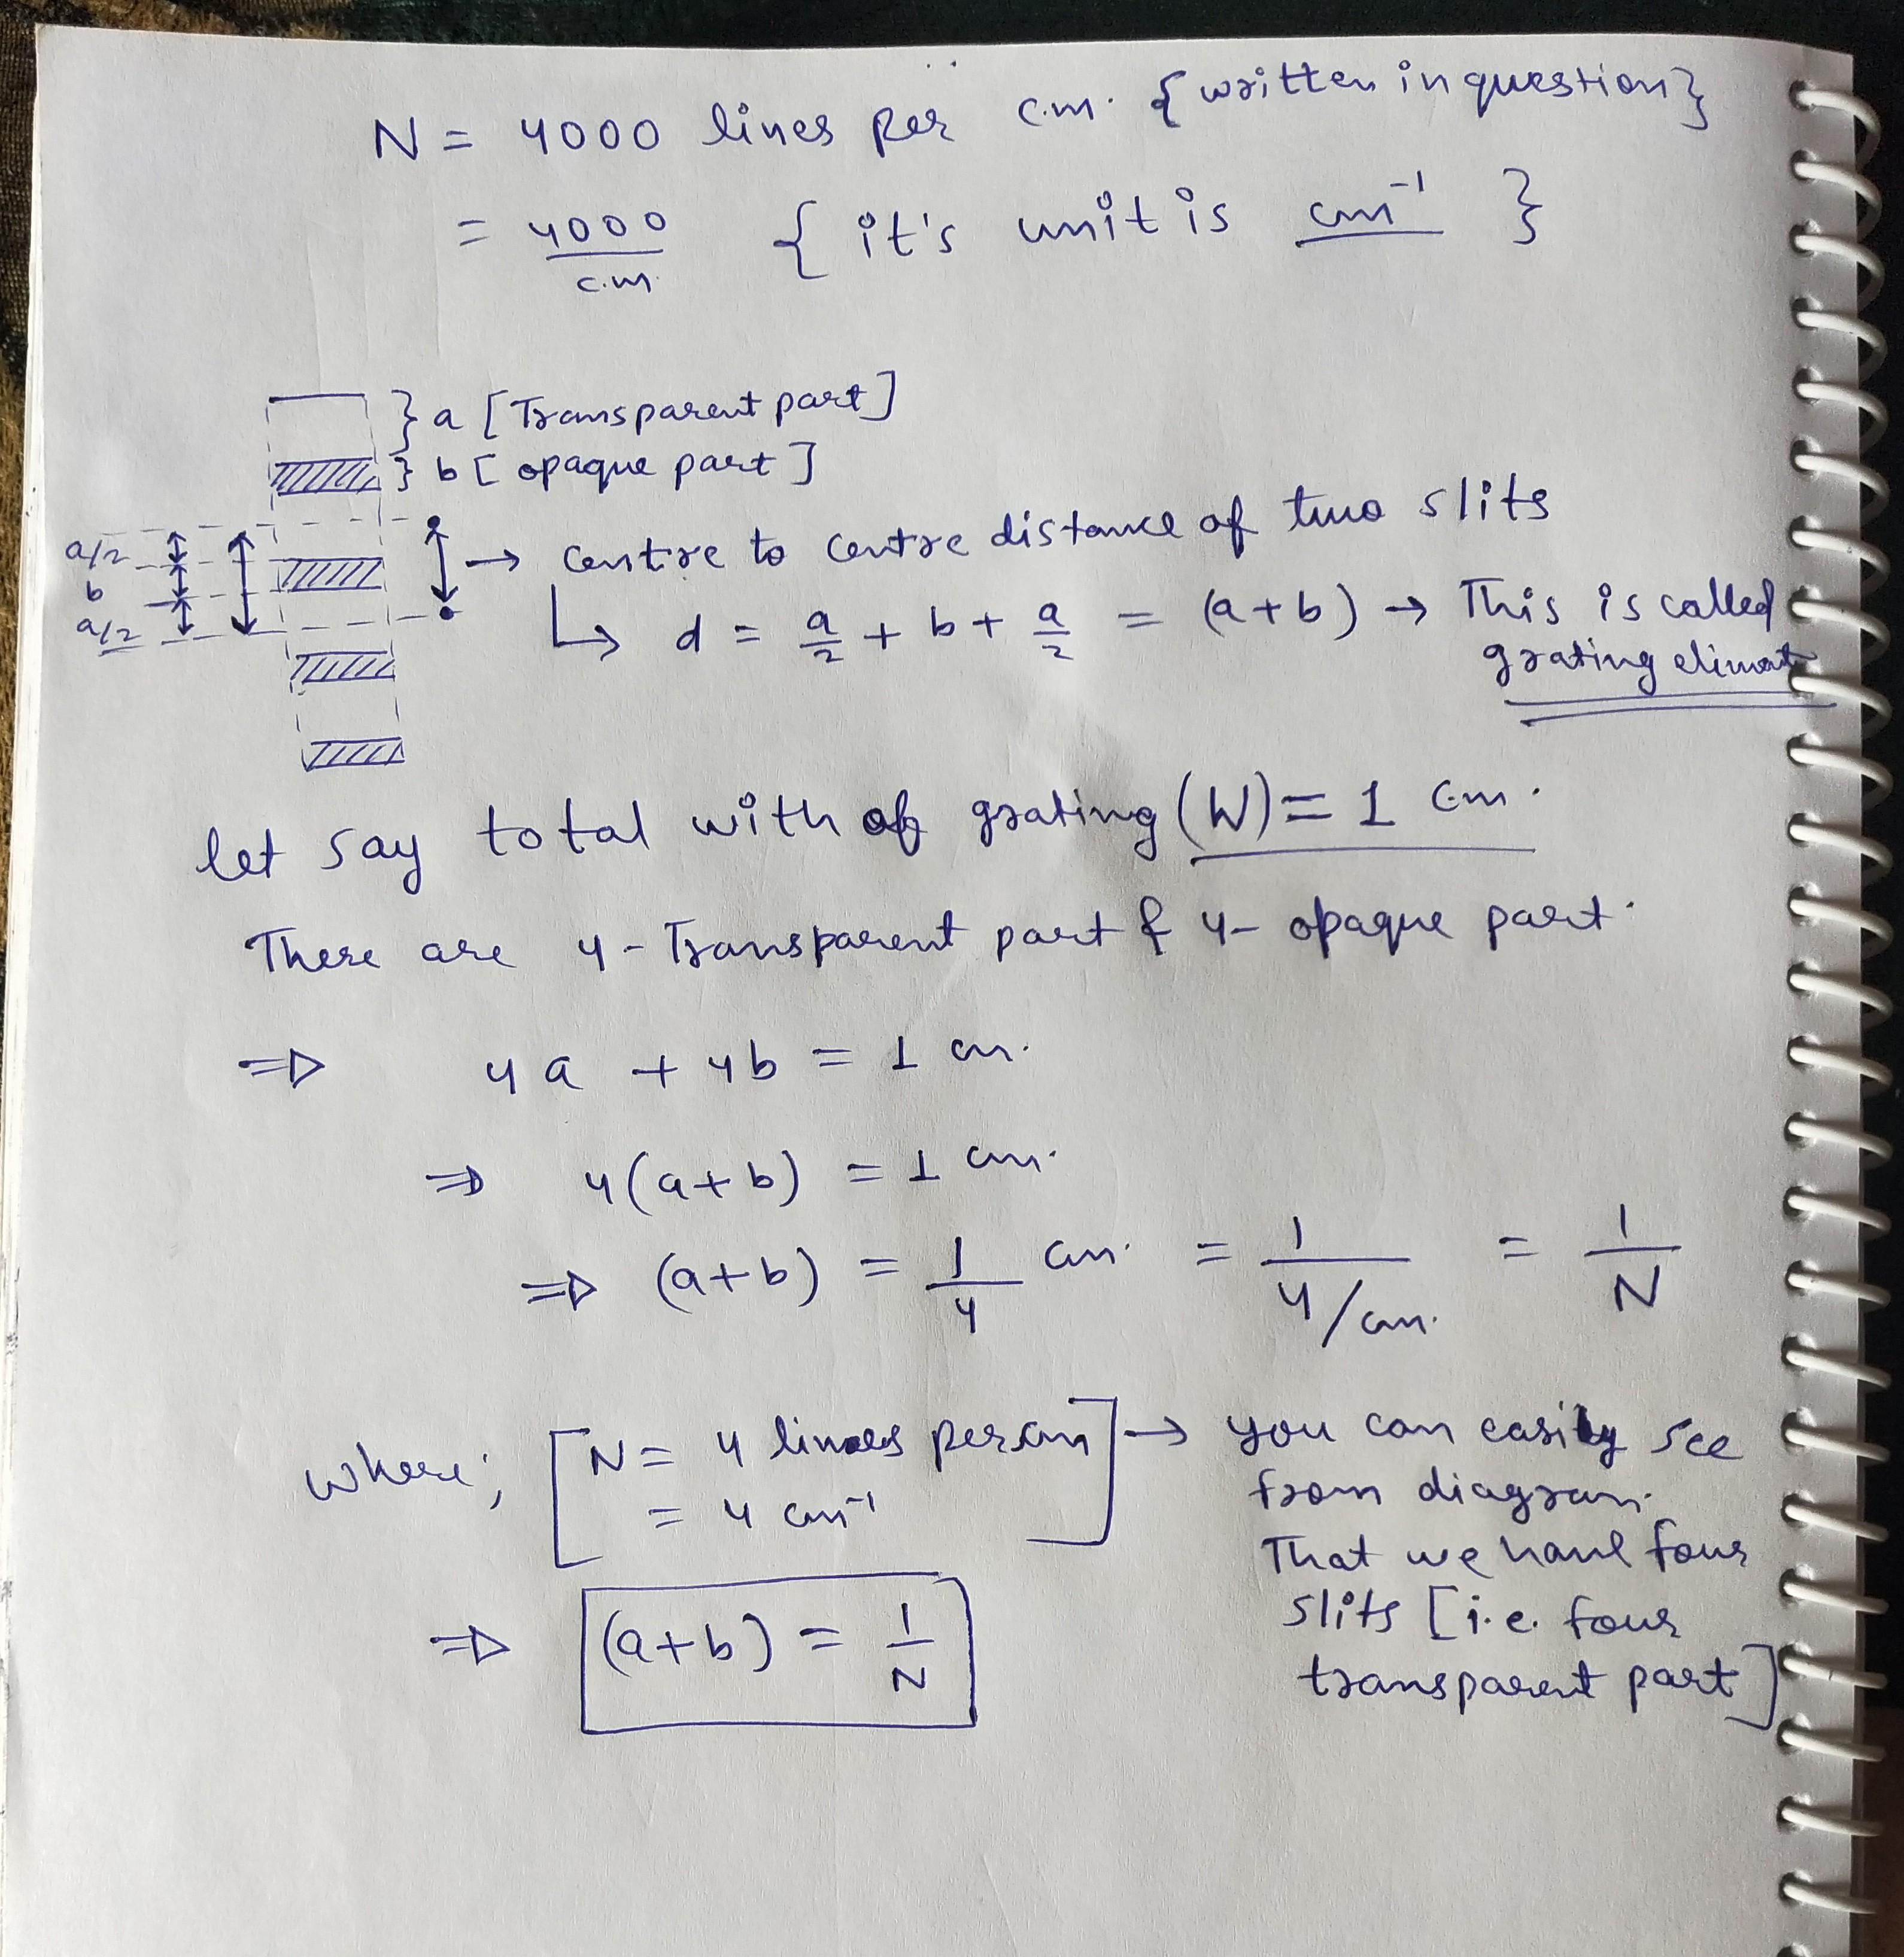 N = 4000 lines per c.m. {written in question}
= 4000/c.m. { it's unit is cm⁻¹ }
} a [Transparent part]
} b [opaque part]
a/2
b
a/2
→ Centre to centre distance of two slits
↳ d = a/2 + b + a/2 = (a+b) → This is called
grating eliment
let say total with of grating (W) = 1 cm.
There are 4-Transparent part & 4-opaque part.
⇒ 4a + 4b = 1 cm.
⇒ 4(a+b) = 1 cm.
⇒ (a+b) = 1/4 cm. = 1/(4/cm.) = 1/N
where; [N = 4 lines per cm = 4 cm⁻¹] → you can easily see
from diagram.
That we have four
slits [i.e. four
transparent part]
⇒ (a+b) = 1/N